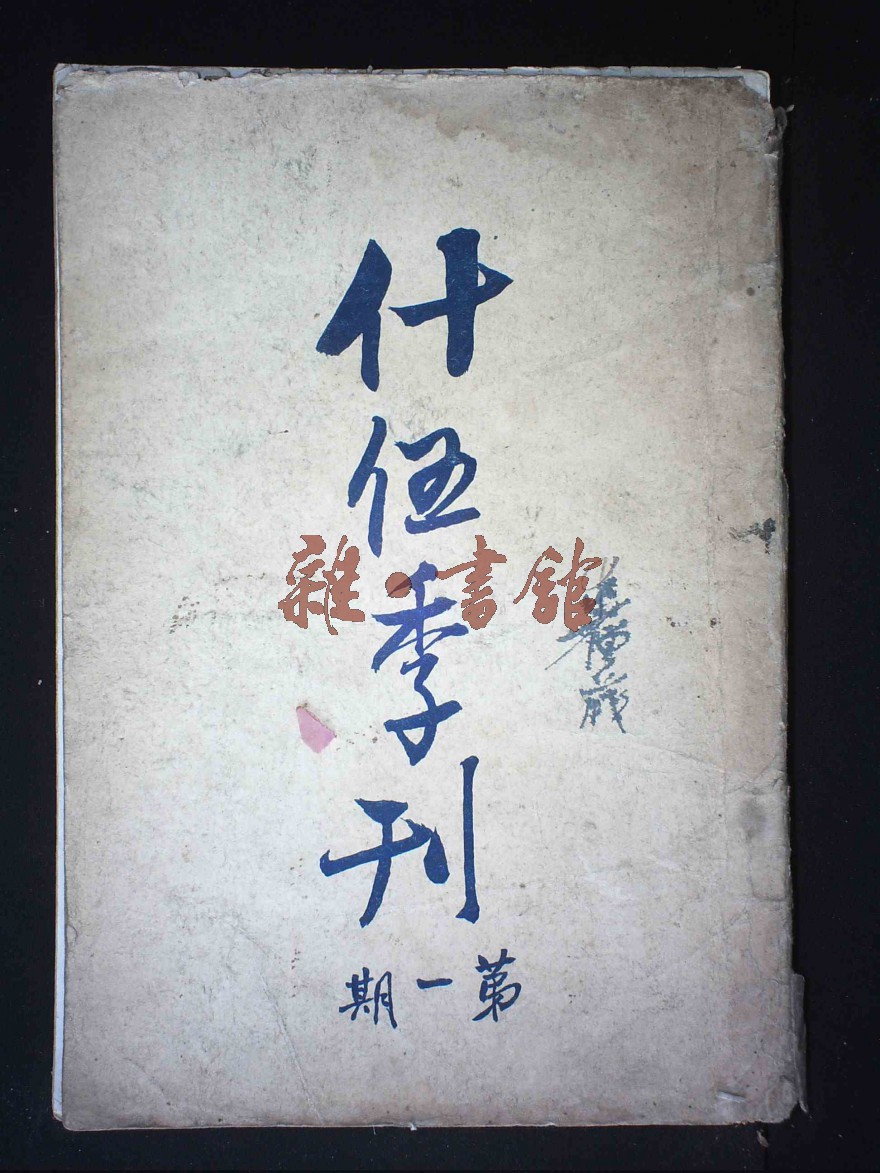 什伍季刊
第一期
雜·書館